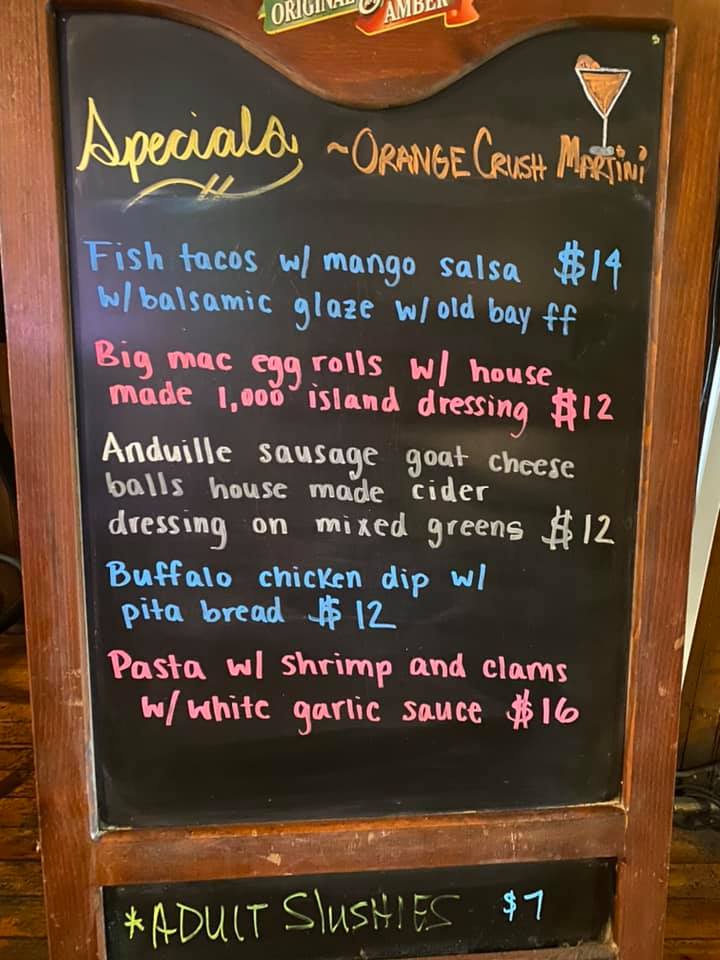 ORIGINAL & AMBER
Specials ~ORANGE CRUSH MARTINI
Fish tacos w/ mango salsa $14
w/balsamic glaze w/old bay ff
Big mac egg rolls w/ house
made 1,000 island dressing $12
Anduille sausage goat cheese
balls house made cider
dressing on mixed greens $12
Buffalo chicken dip w/
pita bread $12
Pasta w/ shrimp and clams
w/white garlic sauce $16
*ADULT SLUSHIES $7